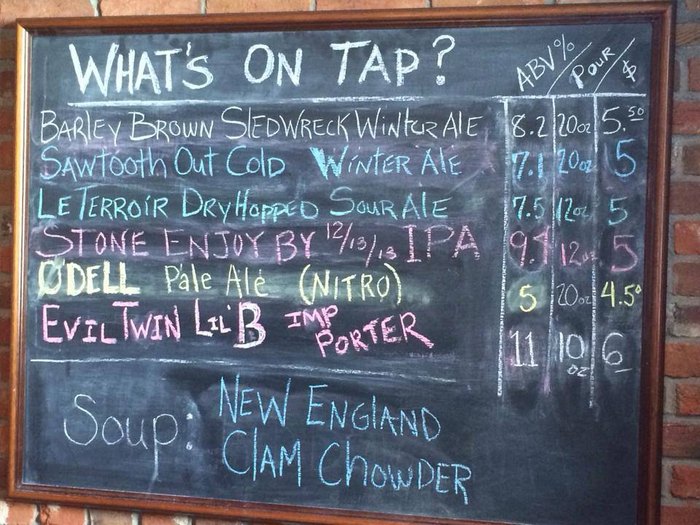 WHAT'S ON TAP? ABV% / POUR / $
BARLEY BROWN SLEDWRECK WINTER ALE 8.2 20oz 5.50
SAWTOOTH OUT COLD WINTER ALE 7.1 20oz 5
LE TERROIR DRY HOPPED SOUR ALE 7.5 12oz 5
STONE ENJOY BY 12/13/13 IPA 9.4 12oz 5
ODELL Pale Ale (NITRO) 5 20oz 4.50
EVIL TWIN LIL'B IMP PORTER 11 10oz 6
Soup: NEW ENGLAND
CLAM CHOWDER